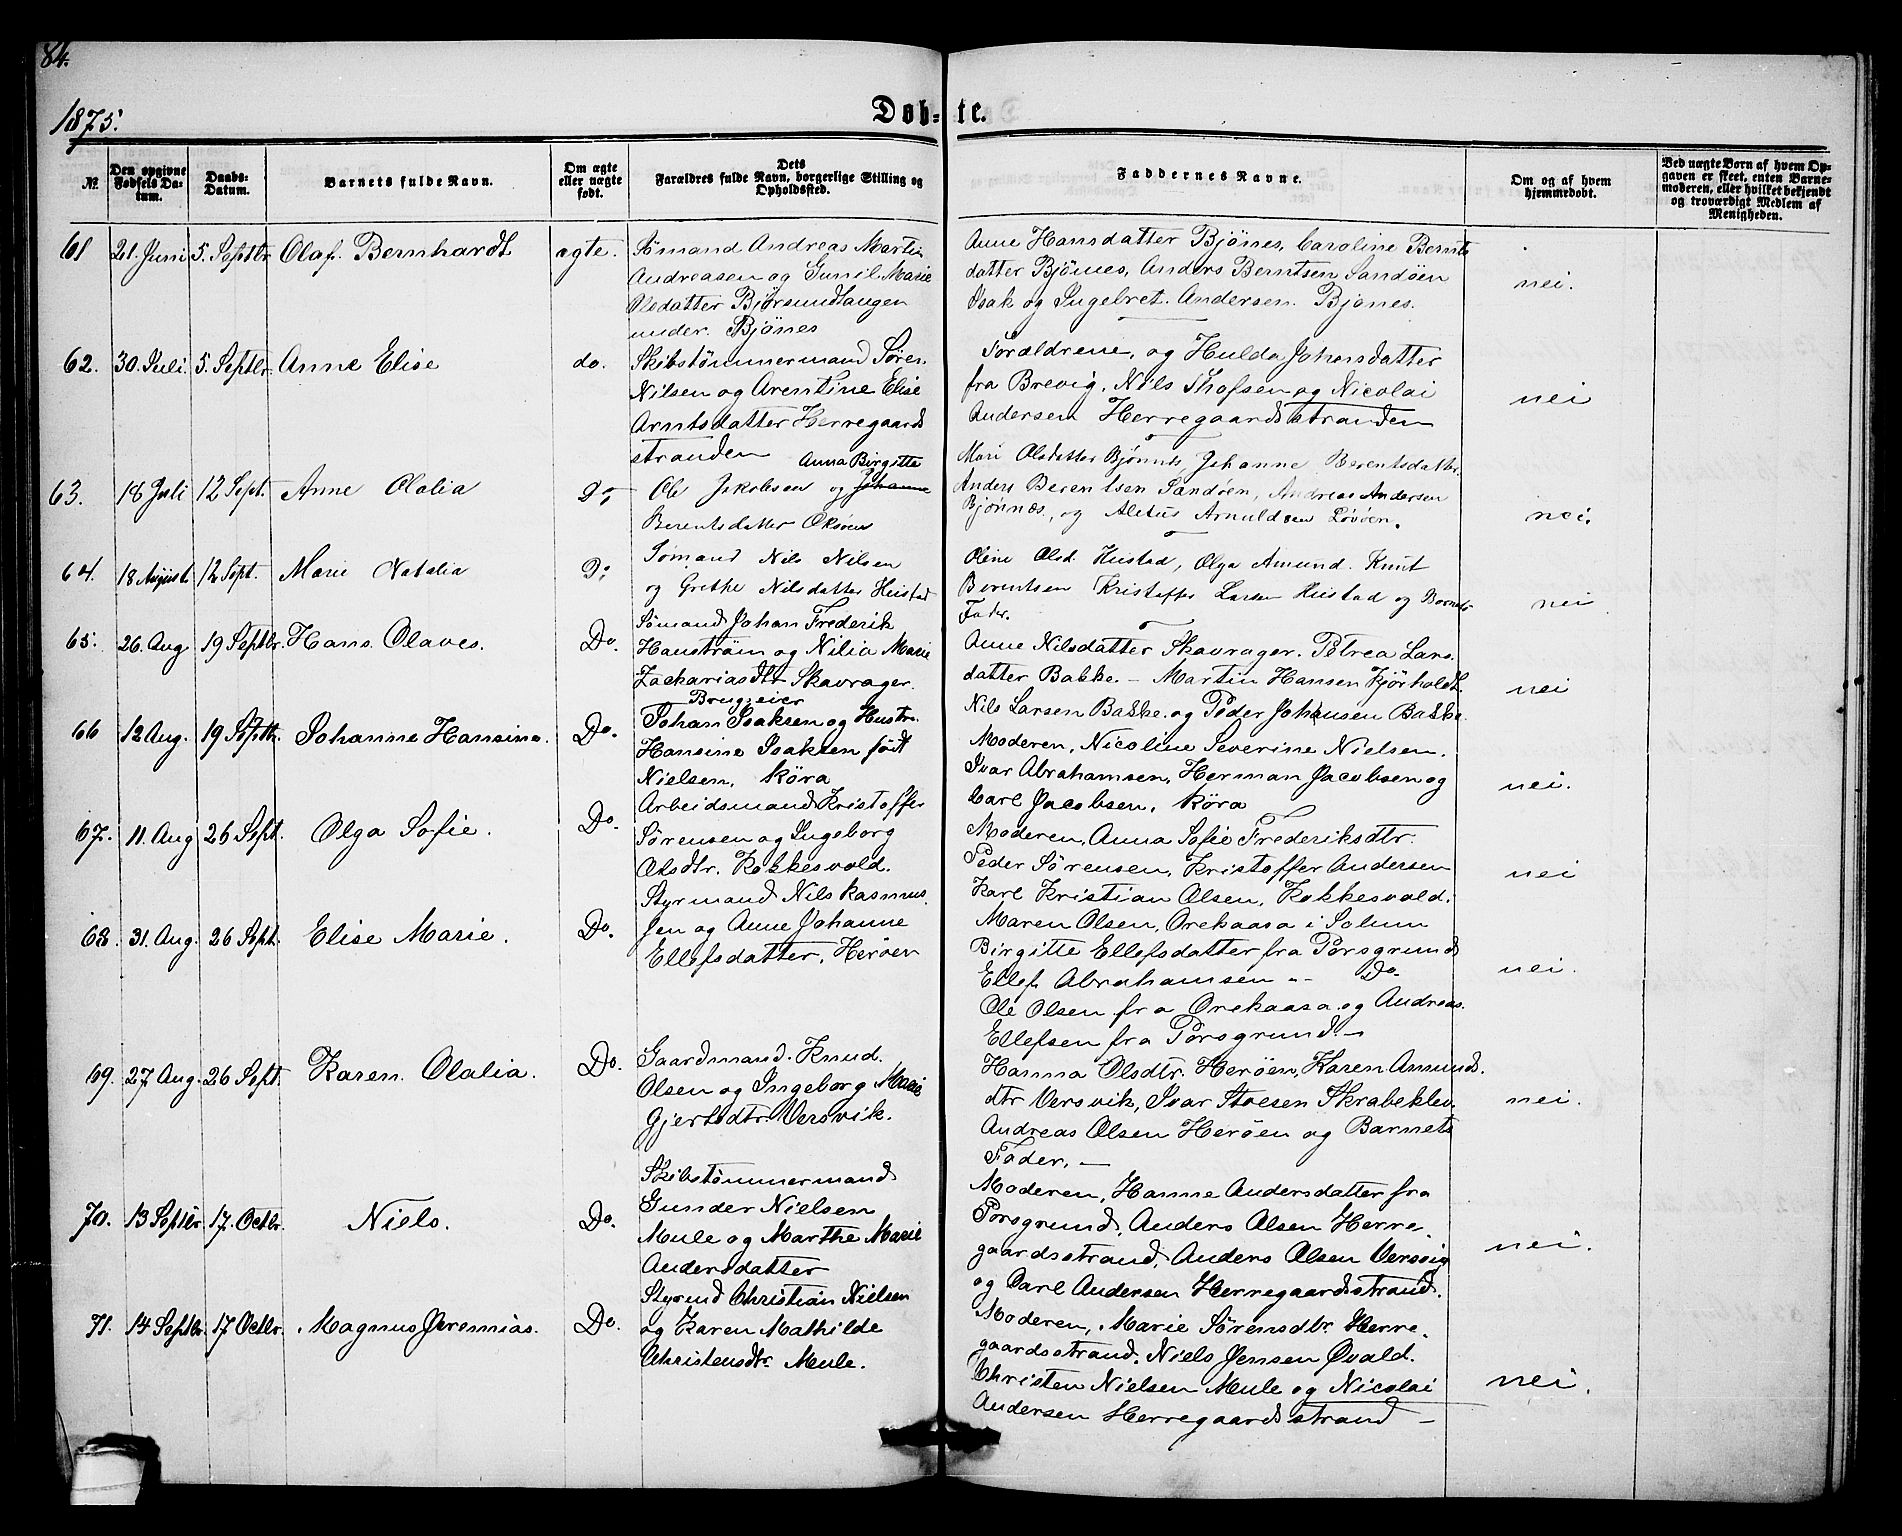 84.
1875.
Døb-te.
No.
Den opgivne Fødsels Datum.
Daabs-Datum.
Barnets fulde Navn.
Om ægte eller uægte født.
Dets Forældres fulde Navn, borgerlige Stilling og Opholdssted.
Faddernes Navne.
Om og af hvem hjemmedøbt.
Ved uægte Børn af hvem Opgaven er skeet, enten Barnemoderen, eller hvilket bekjendt og troværdigt Medlem af Menigheden.
61 21. Juni 5. Septbr Olaf. Bernhardt ægte.
Sømand Andreas Martin
Andreasen og Gunil. Marie
Olsdatter Bjørsundlaugen
under. Bjönes
Anne Hansdatter Bjönes, Caroline Bernts
datter Bjönes, Anders Berntsen Sandöen
Isak og Ingebret. Andersen. Bjönes.
nei.
62. 30. Juli 5. Septbr Anne Elise do.
Skibstömmermand Sören
Nilsen og Arentine Elise
Arntsdatter Herregaards
stranden
Forældrene, og Hulda Johansdatter
fra Brevig. Nils Thofsen og Nicolai
Andersen Herregaardsstranden
nei
63. 18 Juli 12 Sept. Anne Olalia Do
Anna Birgitta
Ole Jakobsen og Johanne
Berentsdatter Oksöen
Mari Olsdatter Bjönnes, Johanne Berentsdatter.
Anders Berentsen Sandöen, Andreas Andersen
Bjönnes, og Aletus Arnuldsen Lövöen.
nei.
64. 18 August 12 Sept. Marie Natalia Do
Sömand Nils Nilsen
og Grethe Nilsdatter Heistad
Oline Olsd. Heistad, Olga Amund. Knut
Berentsen Kristoffer Larsen Heistad og Barnets
Fader.
nei
65. 26. Aug 19 Septbr. Hans. Olaves. Do.
Sömand Johan Frederik
Hauström og Nilia Marie
Zachariasdtr Skavrager.
Anne Nilsdatter Skavrager. Petrea Lars
datter Bakke. – Martin Hansen Kjörholdt
Nils Larsen Bakke. og Peder Johansen Bakke.
nei
66 12 Aug. 19 Septbr. Johanne Hansine. Do.
Brugseier
Johan Isaksen og Hustr.
Hansine Isaksen födt
Nielsen, Köra
Moderen, Nicoline Severine Nielsen.
Ivar Abrahamsen, Herman Jacobsen og
Carl Jacobsen, Köra
nei.
67. 11. Aug 26 Sept. Olga Sofie. Do.
Arbeidsmand Kristoffer
Sörensen og Ingeborg
Olsdtr. Kokkesvold.
Moderen, Anna Sofie Frederiksdtr.
Peder Sörensen, Kristoffer Andersen
Karl Kristian Olsen, Kokkesvold.
nei
68. 31. Aug. 26 Sept. Elise Marie. Do.
Styrmand Nils Rasmus
sen og Anne Johanne
Ellefsdatter, Heröen
Maren Olsen, Orekaasa i Solum
Birgitte Ellefsdatter fra Porsgrund
Ellef Abrahamsen „- Do.
Ole Olsen fra Orekaasa og Andreas.
Ellefsen fra Porsgrund. –
nei.
69. 27 Aug. 26 Sept. Karen. Olalia. Do.
Gaardmand. Knud.
Olsen og Ingeborg Marie
Gjertsdtr. Versvik.
Hanna Olsdtr. Heröen, Karen Amunds.
dtr Versvik, Ivar Stoesen Skrabeklev.
Andreas Olsen Heröen og Barnets
Fader. –
nei.
70. 13 Septbr. 17. Octbr. Niels. Do.
Skibstömmermand
Gunder Nielsen
Mule og Marthe Marie
Andersdatter
Moderen, Hanne Andersdatter fra
Porsgrund, Anders Olsen Herre.
gaardsstrand, Anders Olsen Versvig
og Carl Andersen Herregaardsstrand.
nei.
71. 14 Septbr. 17 Octbr. Magnus Jeremias. Do.
Styrmd Christian Nielsen
og Karen Mathilde
Christensdtr. Mule.
Moderen, Marie Sörensdtr. Herre.
gaardsstrand, Niels Jensen Øvald.
Christen Nielsen Mule og Nicolai
Andersen Herregaardsstrand –
nei.